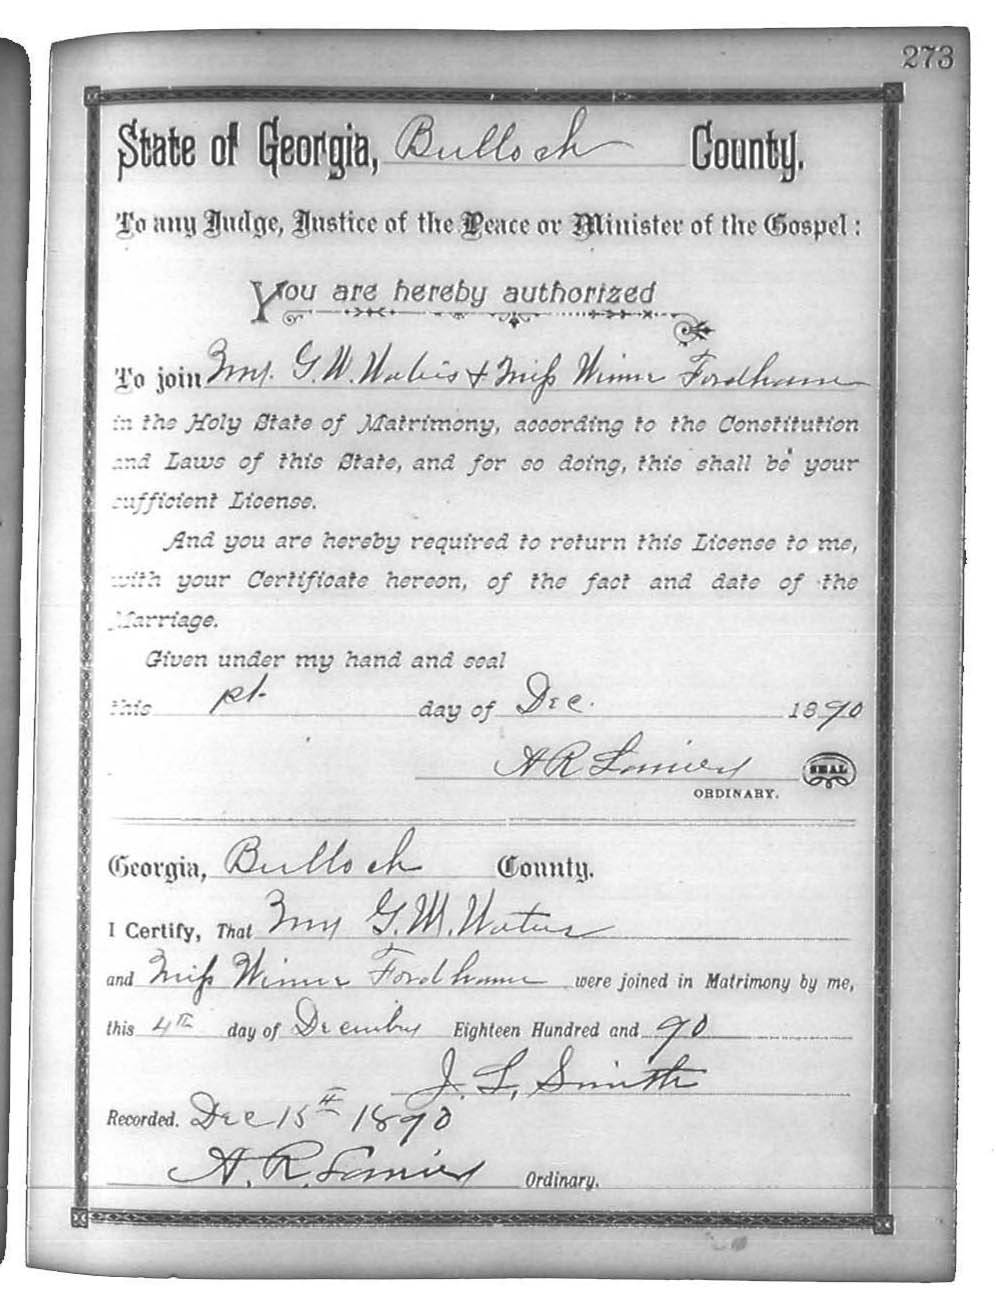 273
State of Georgia, Bulloch County.
To any Judge, Justice of the Peace or Minister of the Gospel:
You are hereby authorized
To join G. W. Waters & Miss Winnie Fordham
in the Holy State of Matrimony, according to the Constitution
and Laws of this State, and for so doing, this shall be your
sufficient License.
And you are hereby required to return this License to me,
with your Certificate hereon, of the fact and date of the
Marriage.
Given under my hand and seal
this day of Dec. 1890
A R Lanier SEAL
ORDINARY.
Georgia, Bulloch County.
I Certify, That G. W. Waters
and Miss Winnie Fordham were joined in Matrimony by me,
this 4th day of December Eighteen Hundred and 90
J. L. Smith
Recorded. Dec 15th 1890
A. R. Lanier Ordinary.